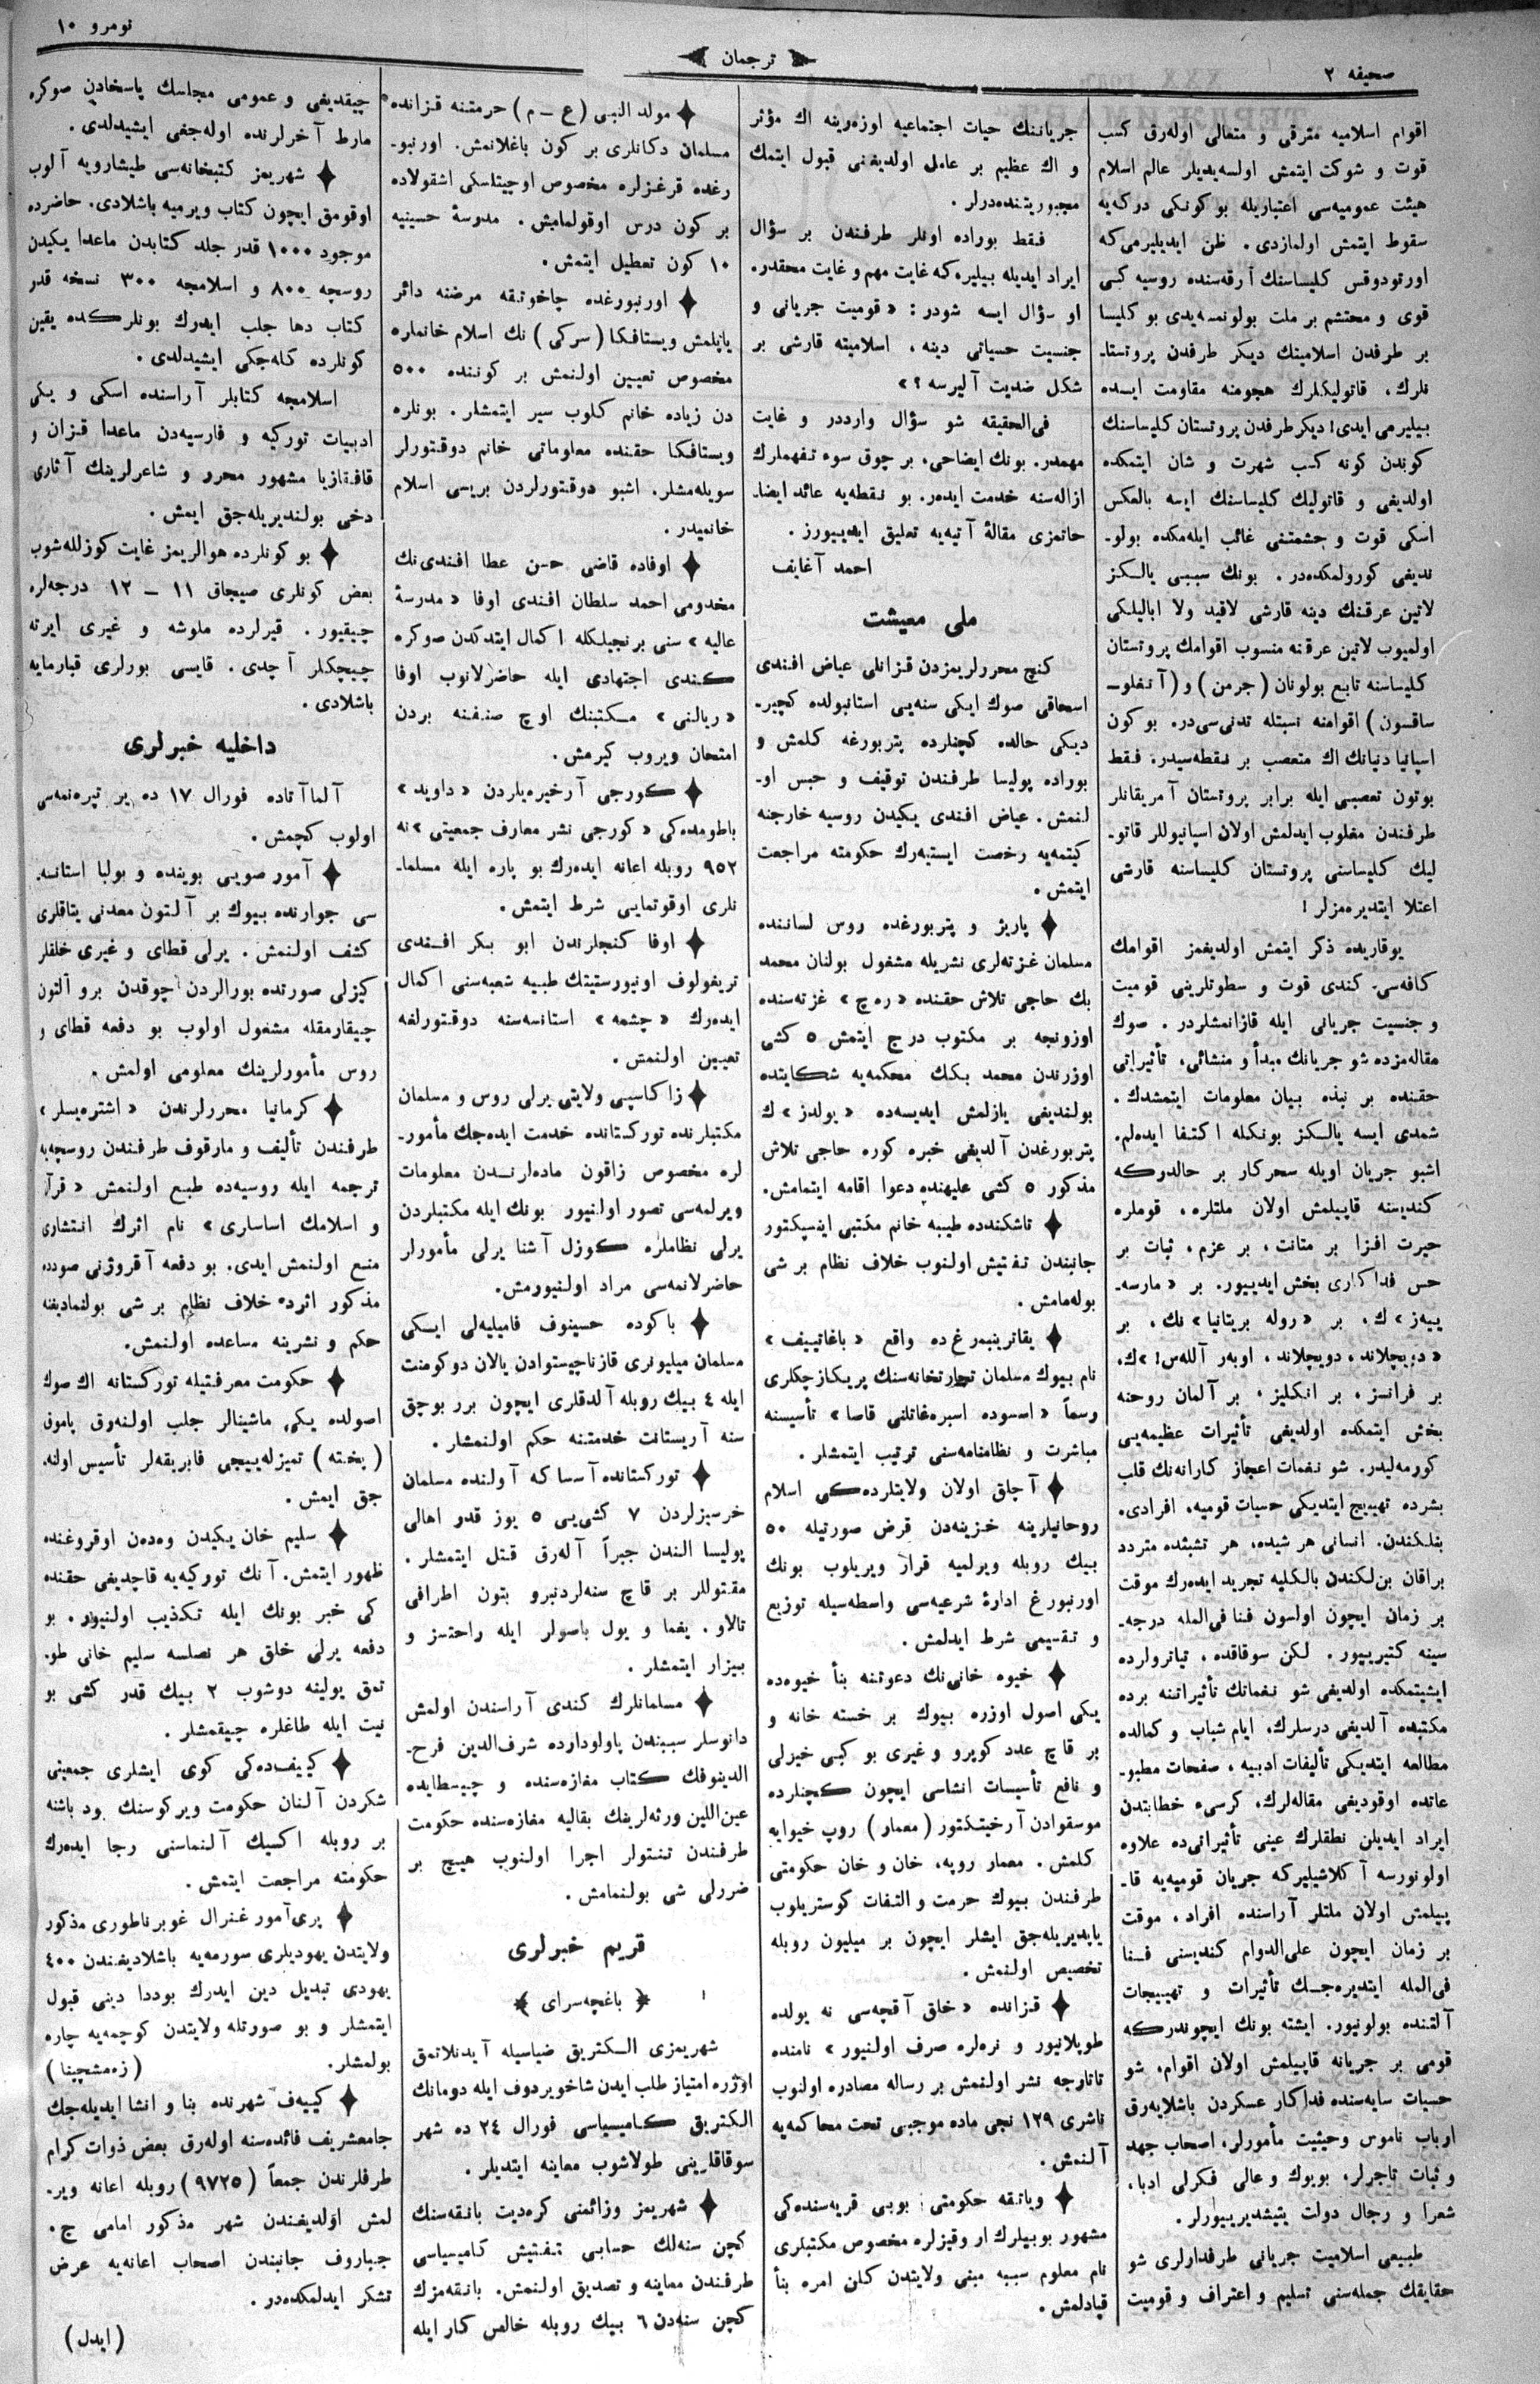 صحیفه ۲
ترجمان
نومرو ۱۰
اقوام اسلامیه مترقی و متعالی اوله‌رق کسب
قوت و شوکت ایتمش اولسه‌یدیلر عالم اسلام
هیئت عمومیه‌سی اعتباریله بو کونکی درکه‌یه
سقوط ایتمش اولمازدی. ظن ایدیلیرمی‌که
اورتودوقس کلیساسنك آرقه‌سنده روسیه کبی
قوی و محتشم بر ملت بولونمسه‌یدی بو کلیسا
بر طرفدن اسلامیتك دیکر طرفدن پروتستا-
نلرك، قاتولیکلرك هجومنه مقاومت ایده
بیلیرمی ایدی؛ دیکر طرفدن پروتستان کلیساسنك
کوندن کونه کسب شهرت و شان ایتمکده
اولدیغی و قاتولیك کلیساسنك ایسه بالعکس
اسکی قوت و حشمتنی غائب ایله‌مکده بولو-
ندیغی کورولمکده‌در. بونك سببی یالکز
لاتین عرقنك دینه قارشی لاقید ولا ابالیلکی
اولمیوب لاتین عرقنه منسوب اقوامك پروتستان
کلیساسنه تابع بولونان (جرمن) و (آنغلو-
ساقسون) اقوامنه نسبتله تدنی‌سی‌در. بو کون
اسپانیا دنیانك اك متعصب بر نقطه‌سیدر، فقط
بوتون تعصبی ایله برابر پروتستان آمریقانلر
طرفندن مغلوب ایدلمش اولان اسپانیوللر قاتو-
لیك کلیساسنی پروتستان کلیساسنه قارشی
اعتلا ایتدیره‌مزلر!
یوقاریده ذکر ایتمش اولدیغمز اقوامك
کافه‌سی کندی قوت و سطوتلرینی قومیت
و جنسیت جریانی ایله قازانمشلردر. صوك
مقاله‌مزده شو جریانك مبدأ و منشائی، تأثیراتی
حقنده بر نبذه بیان معلومات ایتمشدك.
شمدی ایسه یالکز بونکله اکتفا ایده‌لم.
اشبو جریان اویله سحرکار بر حالدرکه
کندیسنه قاپیلمش اولان ملتلره، قوملره
حیرت افزا بر متانت، بر عزم، ثبات بر
حس فداکاری بخش ایدییور. بر «مارسه-
ییه‌ز» ك، بر «روله بریتانیا» نك، بر
«دویچلاند، دویچلاند، اوبه‌ر آلله‌س!» ك،
بر فرانسز، بر انکلیز، بر آلمان روحنه
بخش ایتمکده اولدیغی تأثیرات عظیمه‌یی
کورمه‌لیدر. شو نغمات اعجاز کارانه‌نك قلب
بشرده تهییج ایتدیکی حسیات قومیه، افرادی،
بنلکندن. انسانی هر شیده، هر تشبثده متردد
براقان بن‌لکندن بالکلیه تجرید ایده‌رك موقت
بر زمان ایچون اولسون فنا فی‌المله درجه-
سینه کتیرییور. لکن سوقاقده، تیاترولرده
ایشیتمکده اولدیغی شو نغماتك تأثیراتنه برده
مکتبده آلدیغی درسلرك، ایام شباب و کمالده
مطالعه ایتدیکی تألیفات ادبیه، صفحات مطبو-
عاتده اوقودیغی مقاله‌لرك، کرسیء خطابتدن
ایراد ایدیلن نطقلرك عینی تأثیراتی‌ده علاوه
اولونورسه آکلاشیلیرکه جریان قومیه‌یه قا-
پیلمش اولان ملتلر آراسنده افراد، موقت
بر زمان ایچون علی‌الدوام کندیسنی فنا
فی‌المله ایتدیره‌جك تأثیرات و تهییجات
آلتنده بولونیور. ایشته بونك ایچوندرکه
قومی بر جریانه قاپیلمش اولان اقوام، شو
حسیات سایه‌سنده فداکار عسکردن باشلایه‌رق
ارباب ناموس وحیثیت مأمورلر، اصحاب جهد
و ثبات تاجرلر، بویوك و عالی فکرلی ادبا،
شعرا و رجال دولت یتیشدیرییورلر.
طبیعی اسلامیت جریانی طرفدارلری شو
حقایقك جمله‌سنی تسلیم و اعتراف و قومیت
جریاننك حیات اجتماعیه اوزه‌رینه اك مؤثر
و اك عظیم بر عامل اولدیغنی قبول ایتمك
مجبوریتنده‌درلر.
فقط بوراده اونلر طرفندن بر سؤال
ایراد ایدیله بیلیره که غایت مهم و غایت محقدر.
او سؤال ایسه شودر: «قومیت جریانی و
جنسیت حسیاتی دینه، اسلامیته قارشی بر
شکل ضدیت آلیرسه؟»
فی‌الحقیقه شو سؤال وارددر و غایت
مهمدر. بونك ایضاحی، بر چوق سوء تفهملرك
ازاله‌سنه خدمت ایده‌ر. بو نقطه‌یه عائد ایضا-
حاتمزی مقالهٔ آتیه‌یه تعلیق ایدییورز.
احمد آغایف
ملی معیشت
کنج محررلریمزدن قزانلی عیاض افندی
اسحاقی صوك ایکی سنه‌یی استانبولده کچیر-
دیکی حالده کچنلرده پتربورغه کلمش و
بوراده پولیسا طرفندن توقیف و حبس او-
لنمش. عیاض افندی یکیدن روسیه خارجنه
کیتمه‌یه رخصت ایستیه‌رك حکومته مراجعت
ایتمش.
پاریژ و پتربورغده روس لساننده
مسلمان غزته‌لری نشریله مشغول بولنان محمد
بك حاجی تلاش حقنده «ره‌چ» غزته‌سنده
اوزونجه بر مکتوب درج ایتمش ۵ کشی
اوزرندن محمد بکك محکمه‌یه شکایتده
بولندیغی یازلمش ایدیسه‌ده «یولدز» ك
پتربورغدن آلدیغی خبره کوره حاجی تلاش
مذکور ۵ کشی علیهنده دعوا اقامه ایتمامش.
تاشکندده طیبه خانم مکتبی اینسپکتور
جانبندن تفتیش اولنوب خلاف نظام بر شی
بوله‌مامش.
یقاترینبورغ‌ده واقع «باغاتییف»
نام بیوك مسلمان تجارتخانه‌سنك پریکازچکلری
رسماً «اسسوده اسبره‌غاتلنی قاصا» تأسیسنه
مباشرت و نظامنامه‌سنی ترتیب ایتمشلر.
آجلق اولان ولایتلرده‌کی اسلام
روحانیلرینه خزینه‌دن قرض صورتیله ۵۰
بیك روبله ویرلمیه قرار ویریلوب بونك
اورنبورغ ادارهٔ شرعیه‌سی واسطه‌سیله توزیع
و تقسیمی شرط ایدلمش.
خیوه خانی‌نك دعوتنه بنأ خیوه‌ده
یکی اصول اوزره بیوك بر خسته خانه و
بر قاچ عدد کوپرو و غیری بو کبی خیرلی
و نافع تأسیسات انشاسی ایچون کچنلرده
موسقوادن آرخیتکتور (معمار) روپ خیوایه
کلمش. معمار روپه، خان و خان حکومتی
طرفندن بیوك حرمت و التفات کوستریلوب
یاپدیریله‌جق ایشلر ایچون بر میلیون روبله
تخصیص اولنمش.
قزانده «خلق آقچه‌سی نه یولده
طوپلانیور و نره‌لره صرف اولنیور» نامنده
تاتارجه نشر اولنمش بر رساله مصادره اولنوب
ناشری ۱۲۹ نجی ماده موجبی تحت محاکمه‌یه
آلنمش.
ویاتقه حکومتی بوبی قریه‌سنده‌کی
مشهور بوبیلرك ار وقیزلره مخصوص مکتبلری
نام معلوم سببه مبنی ولایتدن کلن امره بنأ
قپادلمش.
مولد النبی (ع - م) حرمتنه قزانده
مسلمان دکانلری بر کون باغلانمش. اورنبو-
رغده قرغزلره مخصوص اوچیتلسکی اشقولاده
بر کون درس اوقولمامش. مدرسهٔ حسینیه
۱۰ کون تعطیل ایتمش.
اورنبورغده چاخوتقه مرضنه دائر
یاپلمش ویستافکا (سرکی) نك اسلام خانملره
مخصوص تعیین اولنمش بر کوننده ۵۰۰
دن زیاده خانم کلوب سیر ایتمشلر. بونلره
ویستافکا حقنده معلوماتی خانم دوقتورلر
سویله‌مشلر. اشبو دوقتورلردن بریسی اسلام
خانمیدر.
اوفاده قاضی حسن عطا افندی‌نك
مخدومی احمد سلطان افندی اوفا «مدرسهٔ
عالیه» سنی برنجیلکله اکمال ایتدکدن صوکره
کندی اجتهادی ایله حاضرلانوب اوفا
«ریالنی» مکتبنك اوچ صنفنه بردن
امتحان ویروب کیرمش.
کورجی آرخیره‌یلردن «داوید»
باطومده‌کی «کورجی نشر معارف جمعیتی» نه
۹۵۲ روبله اعانه ایده‌رك بو پاره ایله مسلما-
نلری اوقوتمایی شرط ایتمش.
اوفا کنجلرندن ابو بکر افندی
تریغولوف اونیورستیتك طبیه شعبه‌سنی اکمال
ایده‌رك «چشمه» استانسه‌سنه دوقتورلغه
تعیین اولنمش.
زاکاسپی ولایتی یرلی روس و مسلمان
مکتبلرنده تورکستانده خدمت ایده‌جك مأمور-
لره مخصوص زاقون ماده‌لرندن معلومات
ویرلمه‌سی تصور اولنیور بونك ایله مکتبلردن
یرلی نظاملره کوزل آشنا یرلی مأمورلر
حاضرلانمه‌سی مراد اولنیورمش.
باکوده حسینوف فامیلیه‌لی ایکی
مسلمان میلیونری قازناچیستوادن یالان دوکومنت
ایله ٤ بیك روبله آلدقلری ایچون برر بوچق
سنه آریستانت خدمتنه حکم اولنمشلر.
تورکستانده آسساکه آولنده مسلمان
خرسیزلردن ۷ کشی‌یی ۵ یوز قدر اهالی
پولیسا الندن جبراً آله‌رق قتل ایتمشلر.
مقتوللر بر قاچ سنه‌لردنبرو بتون اطرافی
تالاو، یغما و یول باصولر ایله راحتسز و
بیزار ایتمشلر.
مسلمانلرك کندی آراسندن اولمش
دانوسلر سببندن یاولودارده شرف‌الدین فرح-
الدینوفك کتاب مغازه‌سنده و چیسطایده
عین‌اللین ورثه‌لرینك بقالیه مغازه‌سنده حکومت
طرفندن تنتولر اجرا اولنوب هیچ بر
ضررلی شی بولنمامش.
قریم خبرلری
﴿ باغچه‌سرای ﴾
شهریمزی الکتریق ضیاسیله آیدنلاتمق
اوزره امتیاز طلب ایدن شاخویردوف ایله دومانك
الکتریق کامیسیاسی فورال ۲٤ ده شهر
سوقاقلرینی طولاشوب معاینه ایتدیلر.
شهریمز وزائمنی کره‌دیت بانقه‌سنك
کچن سنه‌لك حسابی تفتیش کامیسیاسی
طرفندن معاینه و تصدیق اولنمش. بانقه‌مزك
کچن سنه‌دن ٦ بیك روبله خالص کار ایله
چیقدیغی و عمومی مجلسك پاسخادن صوکره
مارط آخرلرنده اوله‌جغی ایشیدلدی.
شهریمز کتبخانه‌سی طیشارویه آلوب
اوقومق ایچون کتاب ویرمیه باشلادی. حاضرده
موجود ۱۰۰۰ قدر جلد کتابدن ماعدا یکیدن
روسچه ۸۰۰ و اسلامجه ۳۰۰ نسخه قدر
کتاب دها جلب ایدرك بونلرکده یقین
کونلرده کله‌جکی ایشیدلدی.
اسلامجه کتابلر آراسنده اسکی و یکی
ادبیات تورکیه و فارسیه‌دن ماعدا قزان و
قافقازیا مشهور محرر و شاعرلرینك آثاری
دخی بولندیریله‌جق ایمش.
بو کونلرده هوالریمز غایت کوزللهشوب
بعض کونلری صیجاق ۱۱ - ۱۲ درجه‌لره
چیقیور. قیرلرده ملوشه و غیری ایرته
چیچکلر آچدی. قایسی بورلری قبارمایه
باشلادی.
داخلیه خبرلری
آلماآتاده فورال ۱۷ ده یر تپره‌نمه‌سی
اولوب کچمش.
آمور صویی بوینده و بولبا استانسه-
سی جوارنده بیوك بر آلتون معدنی یتاقلری
کشف اولنمش. یرلی قطای و غیری خلقلر
کیزلی صورتده بورالردن چوقدن برو آلتون
چیقارمقله مشغول اولوب بو دفعه قطای و
روس مأمورلرینك معلومی اولمش.
کرمانیا محررلرندن «اشتره‌یسلر»
طرفندن تألیف و مارقوف طرفندن روسچه‌یه
ترجمه ایله روسیه‌ده طبع اولنمش «قرآن
و اسلامك اساساری» نام اثرك انتشاری
منع اولنمش ایدی. بو دفعه آقروژنی صودده
مذکور اثرده خلاف نظام بر شی بولنمادیغنه
حکم و نشرینه مساعده اولنمش.
حکومت معرفتیله تورکستانه اك صوك
اصولده یکی ماشینالر جلب اولنه‌رق پاموق
(پخته) تمیزله‌ییچی فابریقه‌لر تأسیس اولنه-
جق ایمش.
سلیم خان یکیدن وه‌ده‌ن اوقروغنده
ظهور ایتمش. آنك تورکیه‌یه قاچدیغی حقنده
کی خبر بونك ایله تکذیب اولنیور. بو
دفعه یرلی خلق هر نصلسه سلیم خانی طو-
تمق یولینه دوشوب ۲ بیك قدر کشی بو
نیت ایله طاغلره چیقمشلر.
کییف‌ده‌کی کوی ایشلری جمعیتی
شکردن آلنان حکومت ویرکوسنك بود باشنه
بر روبله اکسیك آلنماسنی رجا ایده‌رك
حکومته مراجعت ایتمش.
پری‌آمور غنرال غوبرناطوری مذکور
ولایتدن یهودیلری سورمه‌یه باشلادیغندن ٤۰۰
یهودی تبدیل دین ایدرك بوددا دینی قبول
ایتمشلر و بو صورتله ولایتدن کوچمه‌یه چاره
بولمشلر. (زه‌مشچینا)
کییه‌ف شهرنده بنا و انشا ایدیله‌جك
جامعشریف فائده‌سنه اوله‌رق بعض ذوات کرام
طرفلرندن جمعاً (۹۷۲۵) روبله اعانه ویر-
لمش اولدیغندن شهر مذکور امامی ج.
جباروف جانبندن اصحاب اعانه‌یه عرض
تشکر ایدلمکده‌در.
(ایدل)